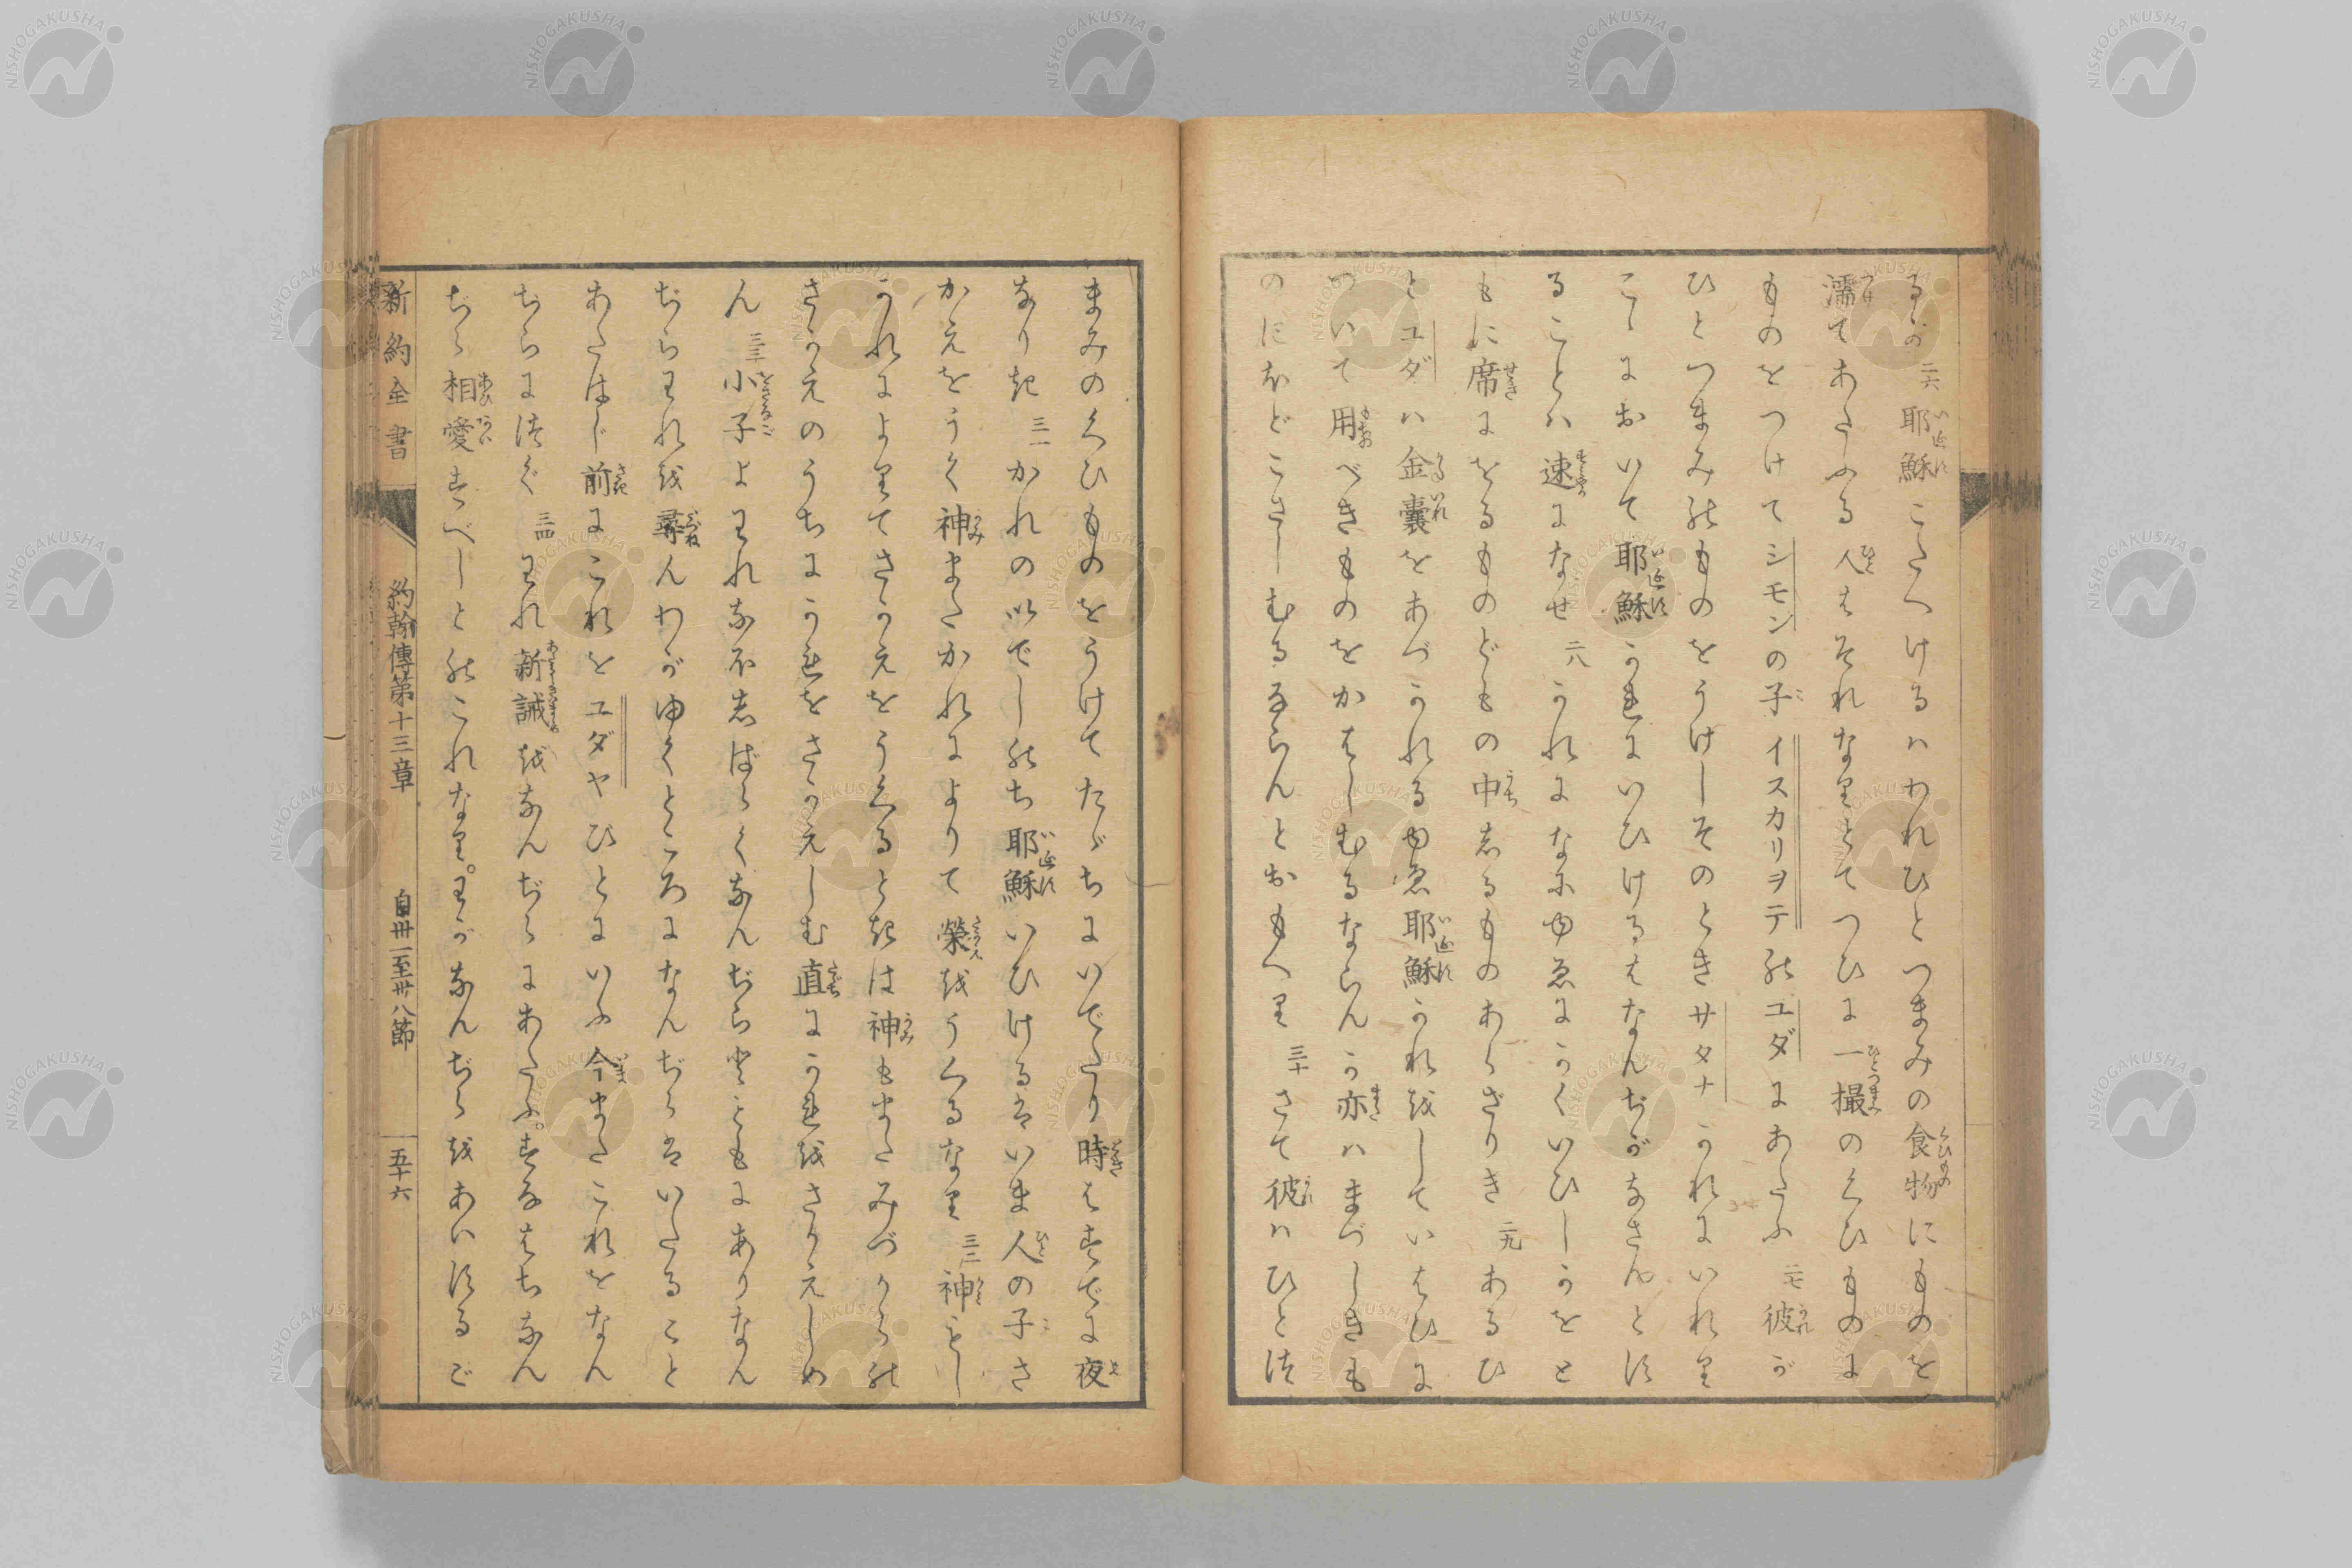 るか 二六 耶穌こたへけるハわれひとつまみの食物にものを
濡てあたふる人はそれなりとてつひに一撮のくひものに
ものをつけてシモンの子イスカリヲテのユダにあたふ 二七 彼が
ひとつまみのものをうけしそのときサタナかれにいれり
こゝにおいて耶穌かれにいひけるはなんぢがなさんとす
ることハ速になせ 二八 かれになにゆゑにかくいひしかをと
もに席にをるものどもの中しるものあらざりき 二九 あるひ
とユダハ金嚢をあづかれるゆゑ耶穌かれをしていはひに
ついて用べきものをかはしむるならんか亦ハまづしきも
のにほどこさしむるならんとおもへり 三十 さて彼ハひとつ
まみのくひものをうけてたゞちにいでたり時はすでに夜
なりき 三一 かれのいでしのち耶穌いひけるはいま人の子さ
かえをうく神またかれによりて榮をうくるなり 三二 神もし
かれによりてさかえをうくるときは神もまたみづからの
さかえのうちにかれをさかえしむ直にかれをさかえしめ
ん 三三 小子よわれなほしばらくなんぢらとともにありなん
ぢらわれを尋んわがゆくところになんぢらはいたること
あたはじ前にこれをユダヤびとにいふ今またこれをなん
ぢらにつぐ 三四 われ新誡をなんぢらにあたふ。すなはちなん
ぢら相愛すべしとのこれなり。わがなんぢらをあいするご
新約全書 約翰傳第十三章 自卅一至卅八節 五十六